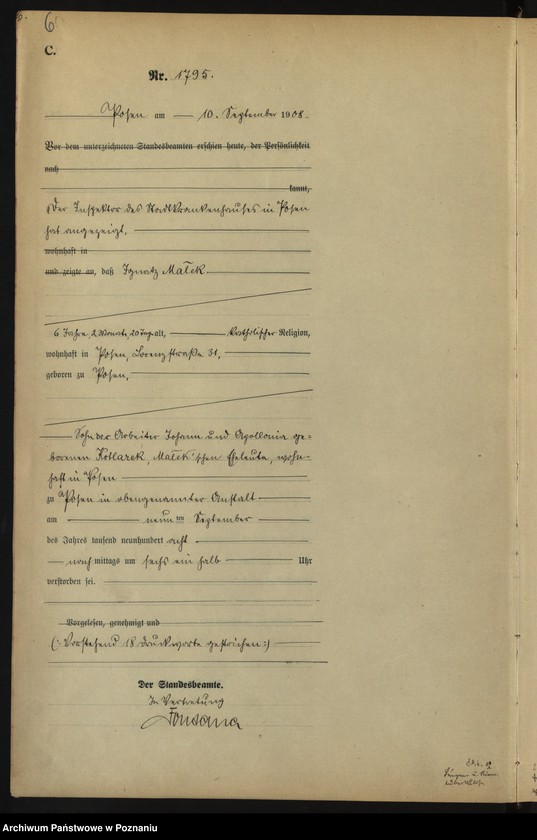 C.
Nr. 1795.
Posen am 10. September 1908
Vor dem unterzeichneten Standesbeamten erschien heute, der Persönlichkeit
nach
kannt,
Der Inspektor des Stadtkrankenhauses in Posen
hat angezeigt,
wohnhaft in
und zeigte an, daß Ignatz Małek
6 Jahre, 2 Monate, 20 Tage alt, katholischer Religion,
wohnhaft in Posen, Lorenzstraße 31,
geboren zu Posen,
Sohn der Arbeiter Johann und Apollonia ge=
borenen Kollarek, Małek'schen Eheleute, wohn=
haft in Posen
zu Posen in obengenannter Anstalt
am neunten September
des Jahres tausend neunhundert acht
nachmittags um sechs ein halb Uhr
verstorben sei.
Vorgelesen, genehmigt und
(: Vorstehend 18 Druckworte gestrichen :)
Der Standesbeamte.
In Vertretung
Fontana
Archiwum Państwowe w Poznaniu